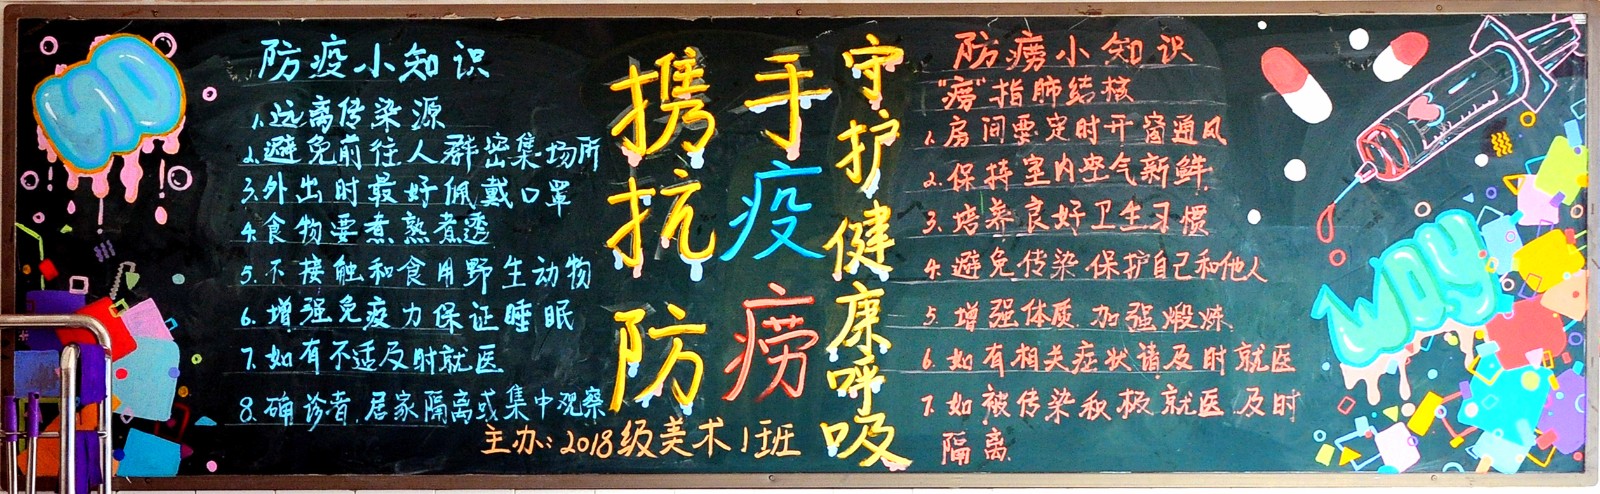 防疫小知识
1.远离传染源
2.避免前往人群密集场所
3.外出时最好佩戴口罩
4.食物要煮熟煮透
5.不接触和食用野生动物
6.增强免疫力保证睡眠
7.如有不适及时就医
8.确诊者.居家隔离或集中观察
携手
抗疫
防痨
守护健康呼吸
主办:2018级美术1班
防痨小知识
"痨"指肺结核
1.房间要定时开窗通风
2.保持室内空气新鲜.
3.培养良好卫生习惯
4.避免传染保护自己和他人
5.增强体质.加强煅炼.
6.如有相关症状请及时就医
7.如被传染积极就医.及时
隔离.